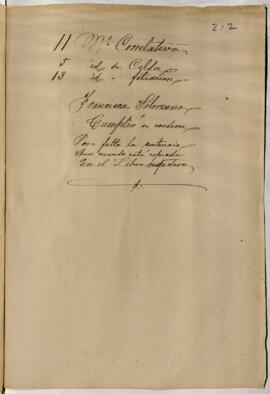 212
11 Nº Correlativo
5 id de Celda
13 id - filiacion
Francisca Solorzano
Cumplió su condena
Pero falta la sentencia
Aun cuando está copiada
En el Libro respectivo